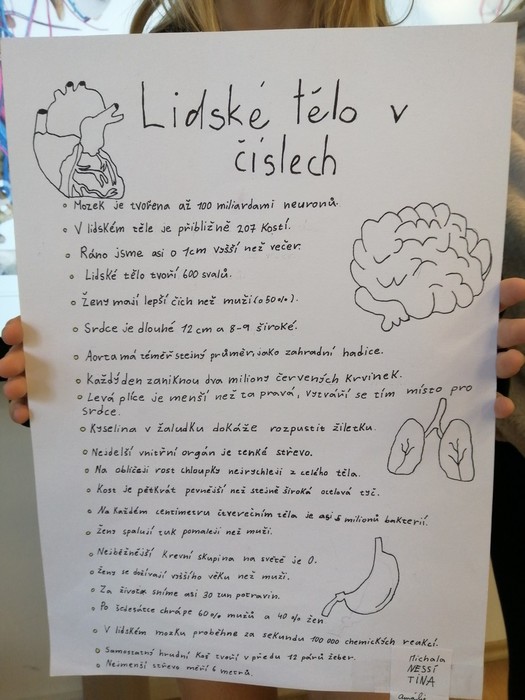 Lidské tělo v
číslech
Mozek je tvořena až 100 miliardami neuronů.
V lidském těle je přibližně 207 kostí.
Ráno jsme asi o 1cm vyšší než večer.
Lidské tělo tvoří 600 svalů.
Ženy mají lepší čich než muži (o 50%).
Srdce je dlouhé 12 cm a 8-9 široké.
Aorta má téměř stejný průměr, jako zahradní hadice.
Každý den zaniknou dva miliony červených krvinek.
Levá plíce je menší než ta pravá, vytváří se tím místo pro
srdce.
Kyselina v žaludku dokáže rozpustit žiletku.
Nejdelší vnitřní orgán je tenké střevo.
Na obličeji rost chloupky nejrychleji z celého těla.
Kost je pětkrát pevnější než stejně široká ocelová tyč.
Na každém centimetru čtverečním těla je asi milionů bakterií.
Ženy spalují tuk pomaleji než muži.
Nejběžnější krevní skupina na světě je 0.
Ženy se dožívají vyššího věku než muži.
Za život sníme asi 30 tun potravin.
Po šedesátce chrápe 60% mužů a 40% žen
V lidském mozku proběhne za sekundu 100 000 chemických reakcí.
Samostatný hrudní koš tvoří v předu 12 párů žeber.
Nejmenší střevo měří 6 metrů.
Michala
NESSÍ
TÍNA